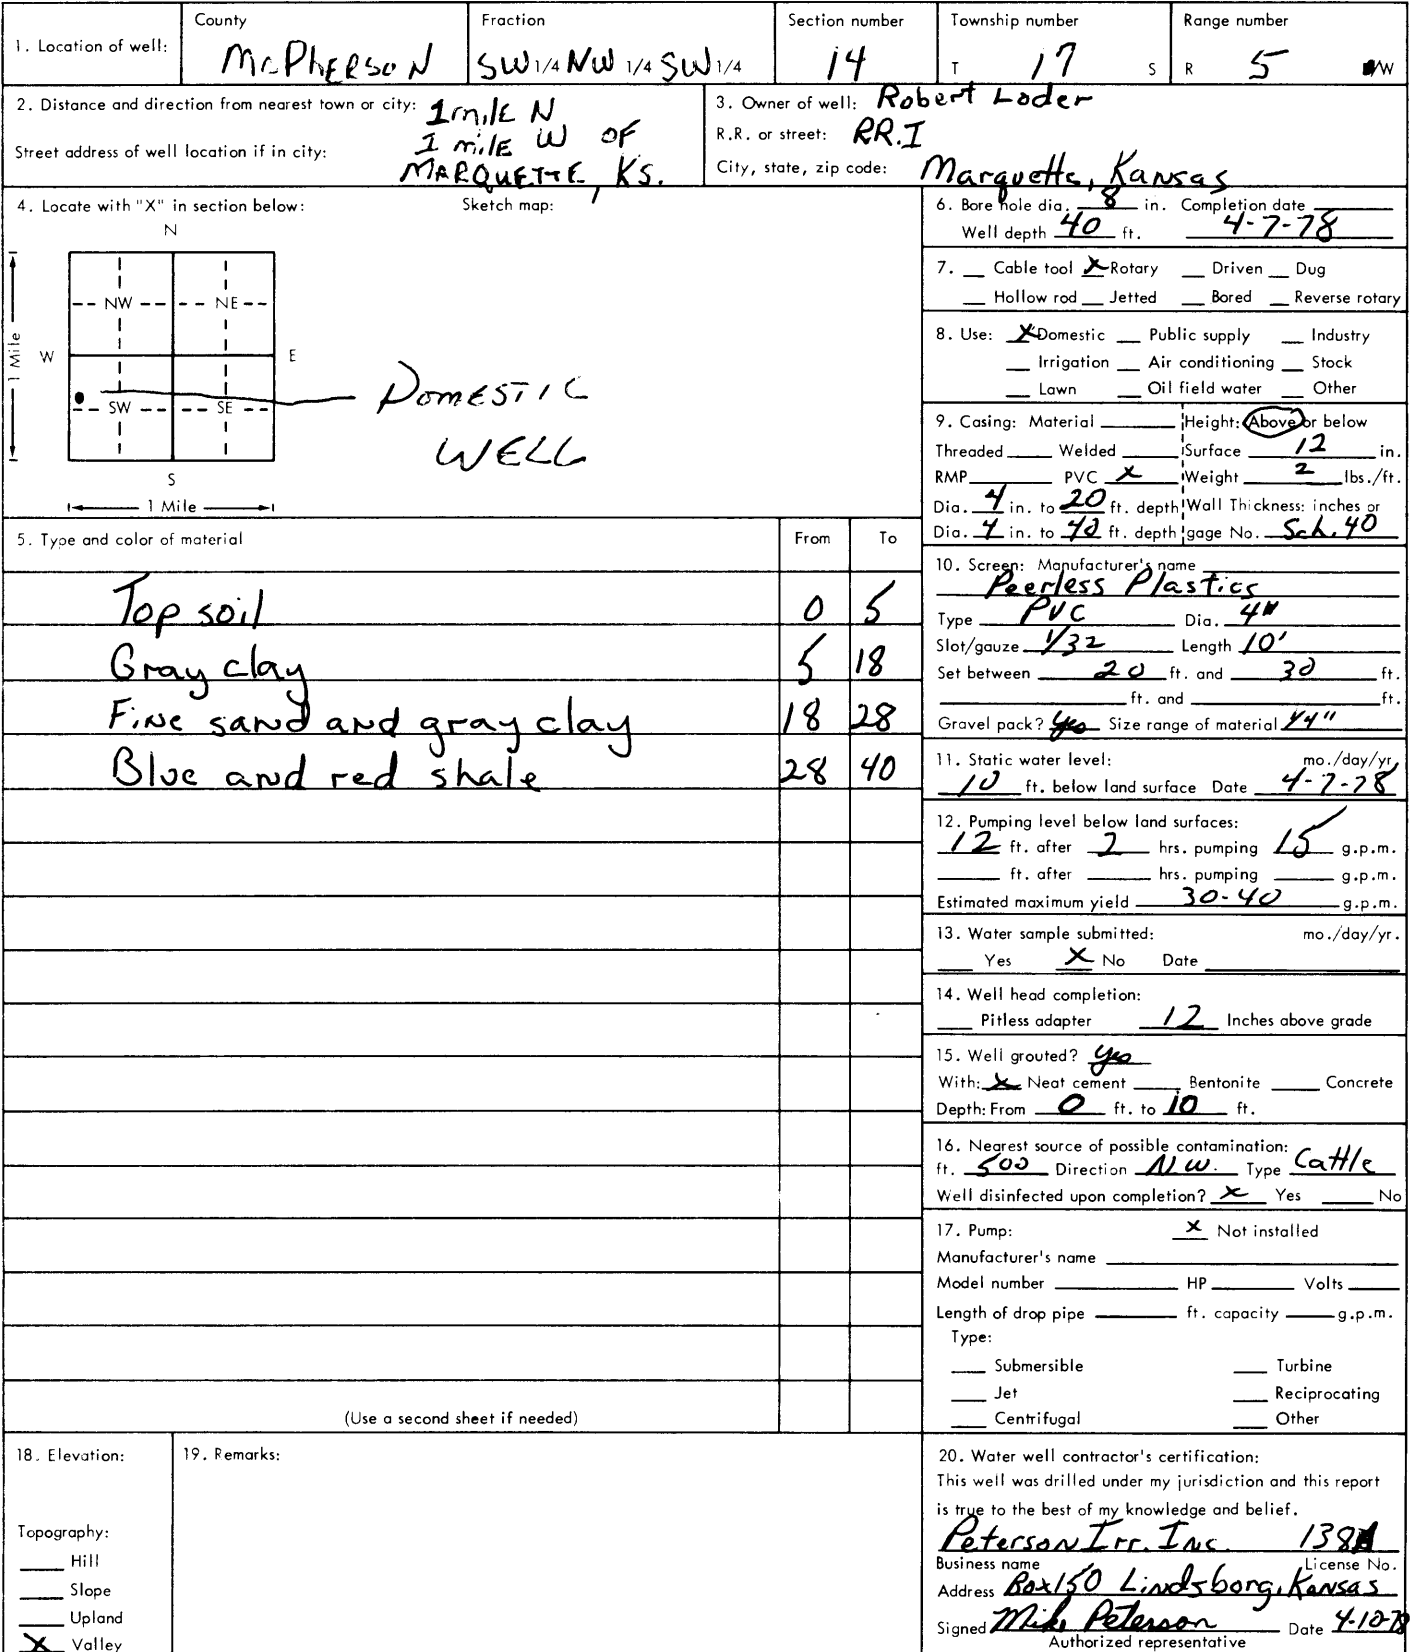 1. Location of well: County McPherson Fraction SW 1/4 NW 1/4 SW 1/4 Section number 14 Township number T 17 S Range number R 5 W
2. Distance and direction from nearest town or city: 1 mile N
1 mile W of
Street address of well location if in city: MARQUETTE, KS.
3. Owner of well: Robert Loder
R.R. or street: RR.I
City, state, zip code: Marquette, Kansas
4. Locate with "X" in section below: Sketch map:
N
NW NE
W E
1 Mile
SW SE
S
1 Mile
DOMESTIC
WELL
5. Type and color of material From To
Top soil 0 5
Gray clay 5 18
Fine sand and gray clay 18 28
Blue and red shale 28 40
(Use a second sheet if needed)
6. Bore hole dia. 8 in. Completion date
Well depth 40 ft. 4-7-78
7. __ Cable tool X Rotary __ Driven __ Dug
__ Hollow rod __ Jetted __ Bored __ Reverse rotary
8. Use: X Domestic __ Public supply __ Industry
__ Irrigation __ Air conditioning __ Stock
__ Lawn __ Oil field water __ Other
9. Casing: Material ____ Height: Above or below
Threaded ____ Welded ____ Surface 12 in.
RMP ____ PVC X Weight 2 lbs./ft.
Dia. 4 in. to 20 ft. depth Wall Thickness: inches or
Dia. 4 in. to 40 ft. depth gage No. Sch. 40
10. Screen: Manufacturer's name
Peerless Plastics
Type PVC Dia. 4"
Slot/gauze 1/32 Length 10'
Set between 20 ft. and 30 ft.
____ ft. and ____ ft.
Gravel pack? Yes Size range of material 1/4"
11. Static water level: mo./day/yr.
10 ft. below land surface Date 4-7-78
12. Pumping level below land surfaces:
12 ft. after 2 hrs. pumping 15 g.p.m.
____ ft. after ____ hrs. pumping ____ g.p.m.
Estimated maximum yield 30-40 g.p.m.
13. Water sample submitted: mo./day/yr.
__ Yes X No Date ____
14. Well head completion:
__ Pitless adapter 12 Inches above grade
15. Well grouted? Yes
With: X Neat cement ____ Bentonite ____ Concrete
Depth: From 0 ft. to 10 ft.
16. Nearest source of possible contamination:
ft. 500 Direction N.W. Type Cattle
Well disinfected upon completion? X Yes ____ No
17. Pump: X Not installed
Manufacturer's name ____
Model number ____ HP ____ Volts ____
Length of drop pipe ____ ft. capacity ____ g.p.m.
Type:
__ Submersible __ Turbine
__ Jet __ Reciprocating
__ Centrifugal __ Other
18. Elevation:
Topography:
__ Hill
__ Slope
__ Upland
X Valley
19. Remarks:
20. Water well contractor's certification:
This well was drilled under my jurisdiction and this report
is true to the best of my knowledge and belief.
Peterson Irr. Inc. 138
Business name License No.
Address Box 150 Lindsborg, Kansas
Signed Mike Peterson Date 4-10-78
Authorized representative